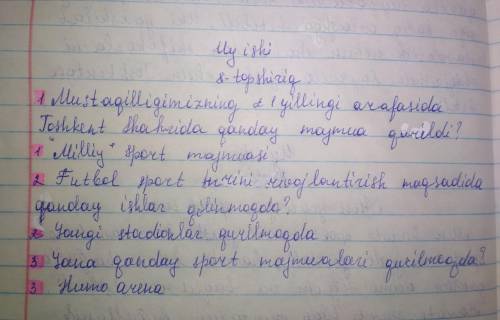 Uy ishi
8-topshiriq
1 Mustaqilligimizning 21 yillingi arafasida
Toshkent shahrida qanday majmua qurildi?
1 "Milliy" sport majmuasi
2 Futbol sport turini rivojlantirish maqsadida
qanday ishlar qilinmoqda?
2 Yangi stadionlar qurilmoqda
3 Yana qanday sport majmualari qurilmoqda?
3 Humo arena